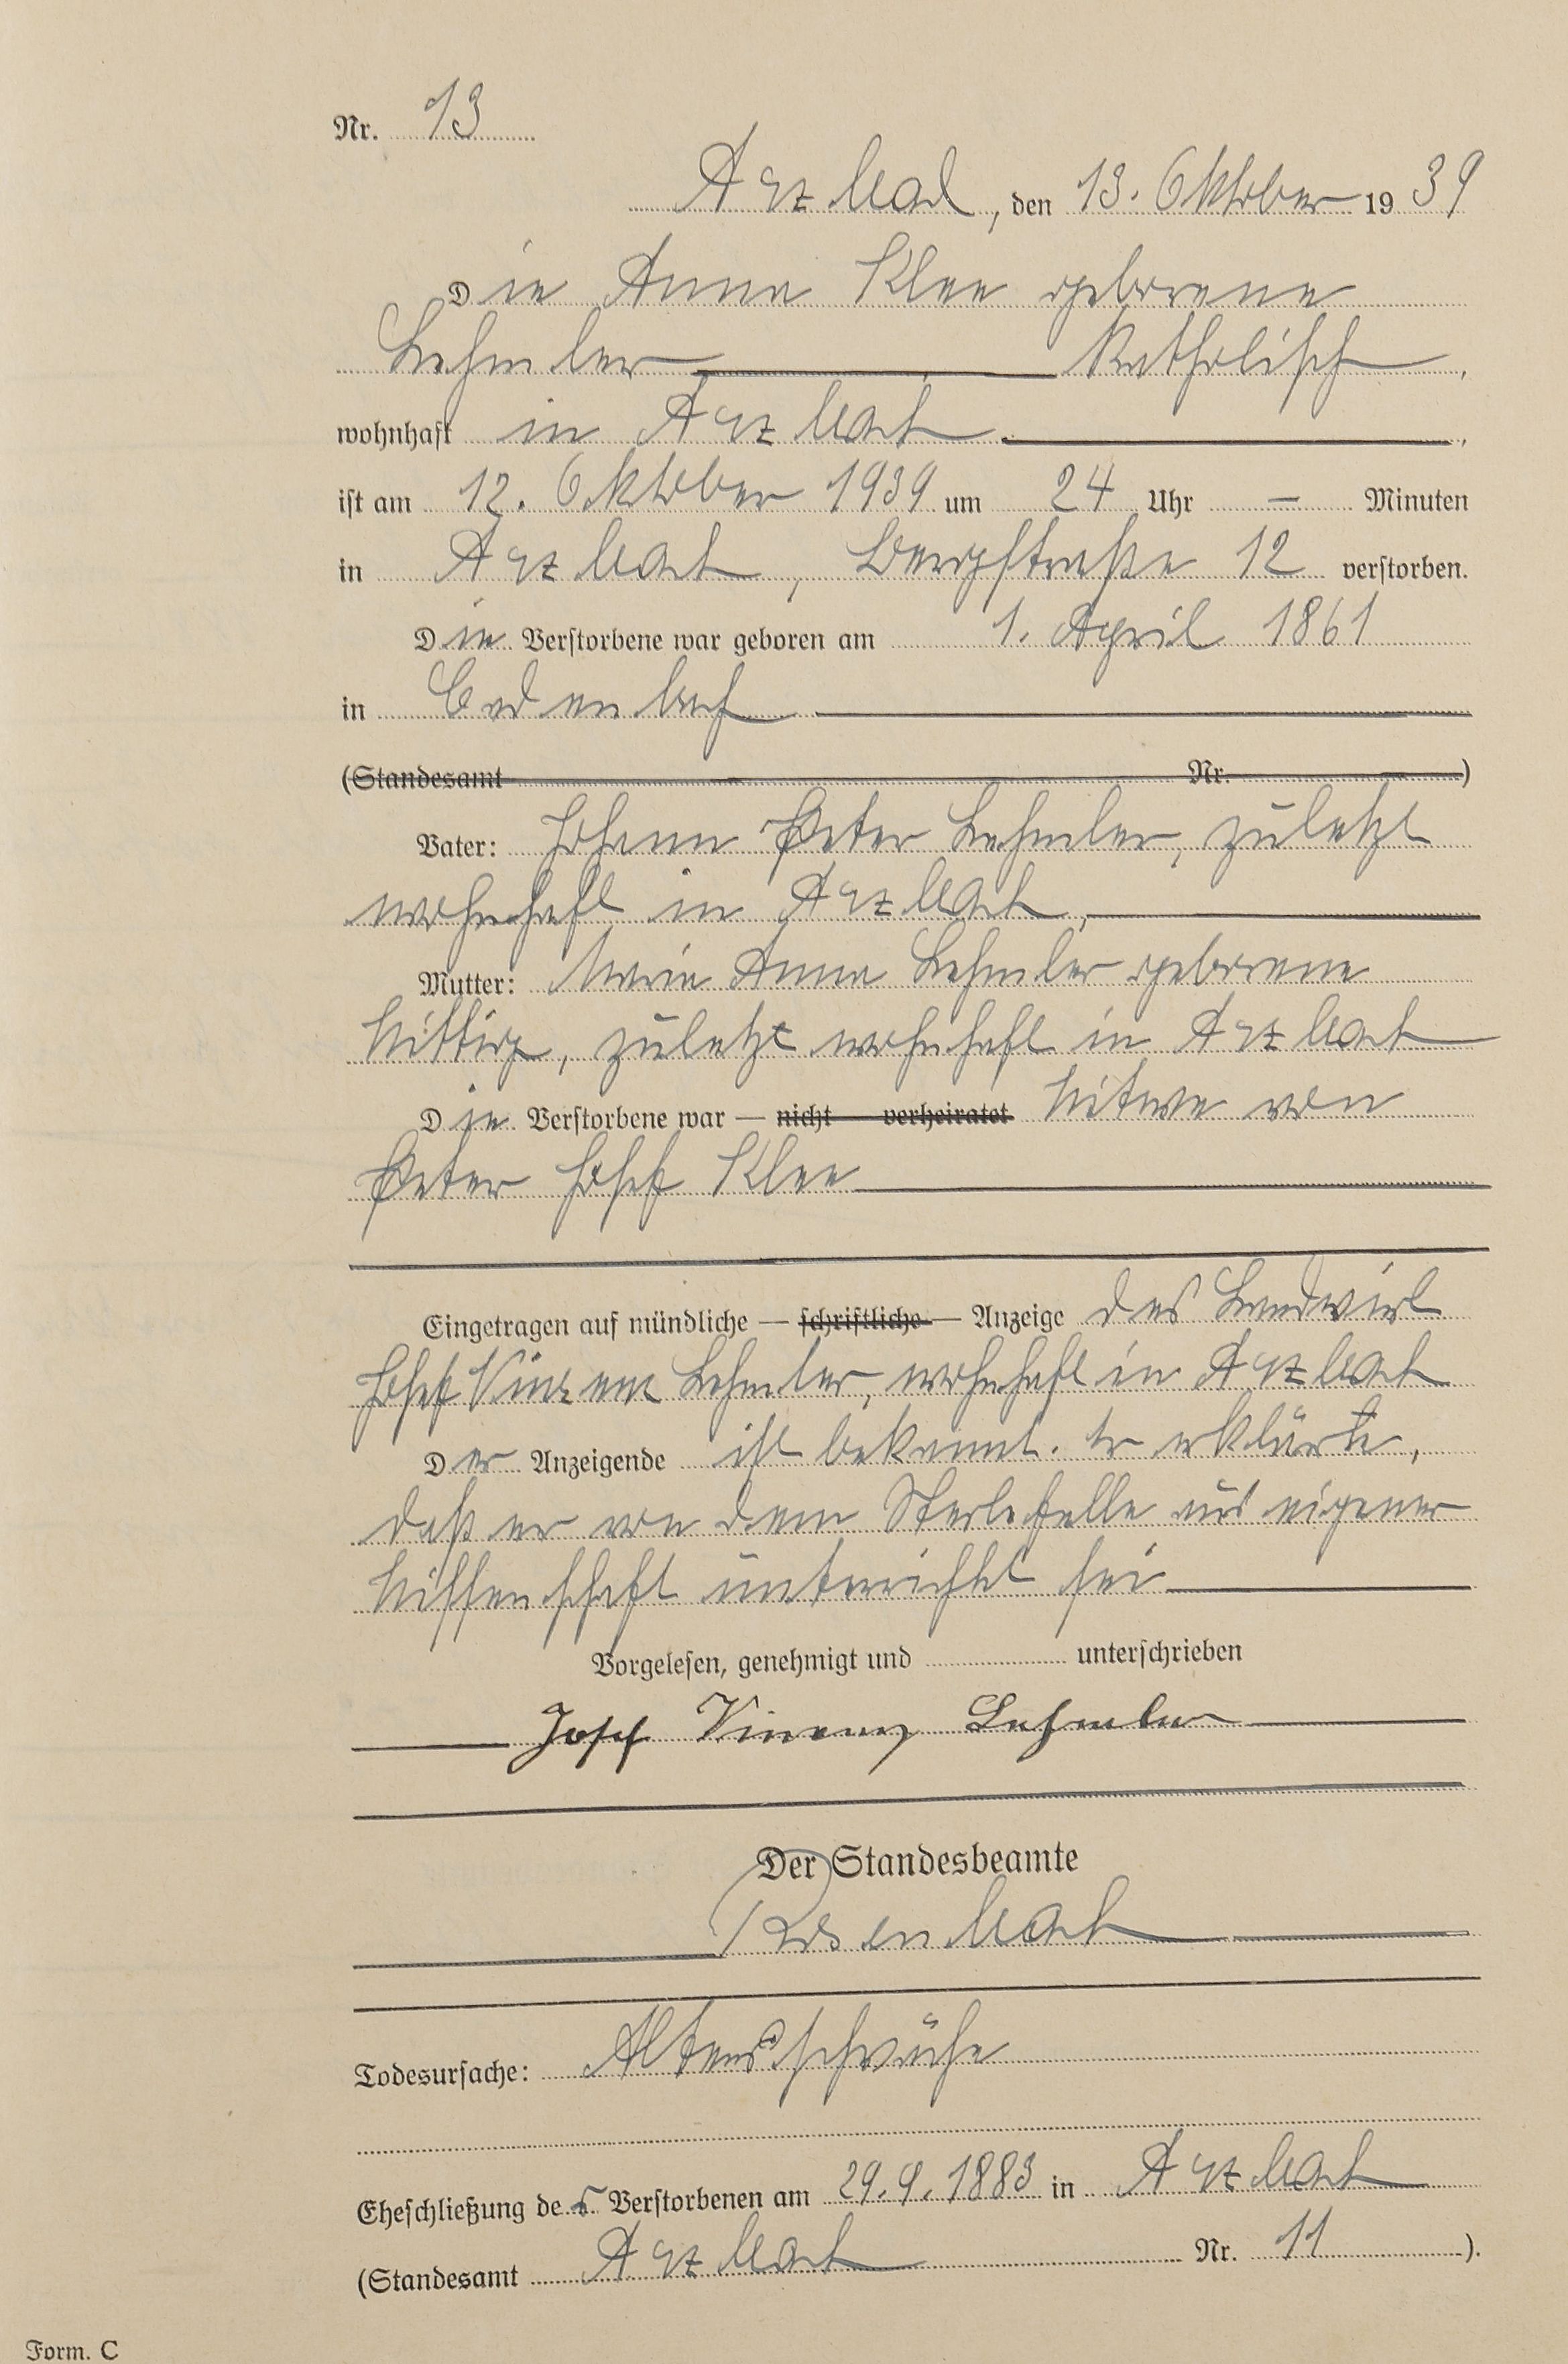 Nr. 13
Arzbach, den 13. Oktober 1939
Die Anna Klee geborene
Lehmler katholisch,
wohnhaft in Arzbach,
ist am 12. Oktober 1939 um 24 Uhr — Minuten
in Arzbach, Bergstraße 12 verstorben.
Die Verstorbene war geboren am 1. April 1861
in
(Standesamt Nr. )
Vater: Johann Peter Lehmler, zuletzt
wohnhaft in Arzbach,
Mutter: Maria Anna Lehmler geborene
Wittig, zuletzt wohnhaft in Arzbach
Die Verstorbene war — nicht verheiratet Witwe von
Peter Josef Klee
Eingetragen auf mündliche — schriftliche — Anzeige des Landwirt
Josef Vinzenz Lehmler, wohnhaft in Arzbach
Der Anzeigende ist bekannt. Er erklärte,
daß er von dem Sterbefalle aus eigener
Wissenschaft unterrichtet sei
Vorgelesen, genehmigt und unterschrieben
Josef Vincenz Lehmler
Der Standesbeamte
Rosenbach
Todesursache: Altersschwäche
Eheschließung der Verstorbenen am 29.9.1883 in Arzbach
(Standesamt Arzbach Nr. 11 ).
Form. C